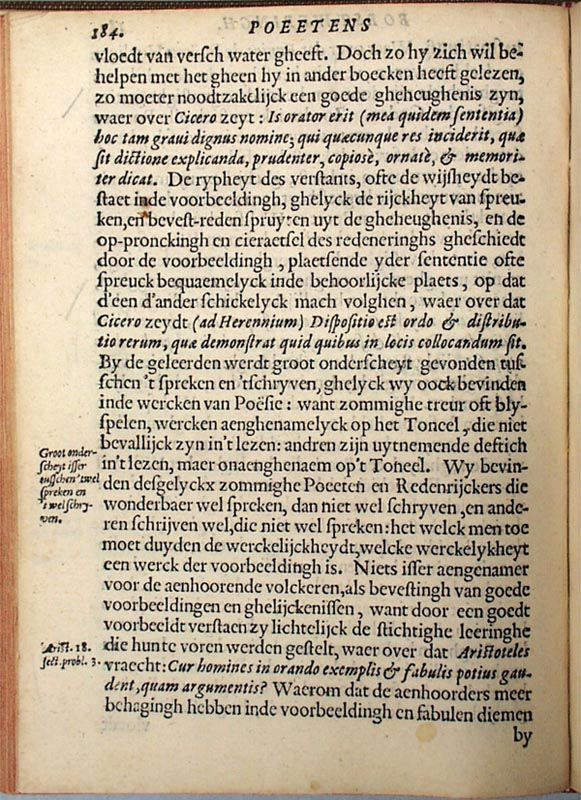 184. POEETENS
vloedt van versch water gheeft. Doch zo hy zich wil be-
helpen met het gheen hy in ander boecken heeft gelezen,
zo moeter noodtzakelijck een goede gheheughenis zyn,
waer over Cicero zeyt: Is orator erit (mea quidem sententia)
hoc tam graui dignus nomine; qui quæcunque res inciderit, quæ
sit dictione explicanda, prudenter, copiosè, ornatè, & memori-
ter dicat. De rypheyt des verstants, ofte de wijsheydt be-
staet inde voorbeeldingh, ghelyck de rijckheyt van spreu-
ken, en bevest-reden spruyten uyt de gheheughenis, en de
op-pronckingh en cieraetsel des redeneringhs gheschiedt
door de voorbeeldingh, plaetsende yder sententie ofte
spreuck bequaemelyck inde behoorlijcke plaets, op dat
d'een d'ander schickelyck mach volghen, waer over dat
Cicero zeydt (ad Herennium) Dispositio est ordo & distribu-
tio rerum, quæ demonstrat quid quibus in locis collocandum sit.
By de geleerden werdt groot onderscheyt gevonden tus-
schen 't spreken en 'tschryven, ghelyck wy oock bevinden
inde wercken van Poësie: want zommighe treur oft bly-
spelen, wercken aenghenamelyck op het Toneel, die niet
bevallijck zyn in't lezen: andren zijn uytnemende destich
in't lezen, maer onaenghenaem op't Toneel. Wy bevin-
den desgelyckx zommighe Poeeten en Redenrijckers die
wonderbaer wel spreken, dan niet wel schryven, en ande-
ren schrijven wel, die niet wel spreken: het welck men toe
moet duyden de werckelijckheydt, welcke werckelykheyt
een werck der voorbeeldingh is. Niets isser aengenamer
voor de aenhoorende volckeren, als bevestingh van goede
voorbeeldingen en ghelijckenissen, want door een goedt
voorbeeldt verstaen zy lichtelijck de stichtighe leeringhe
die hun te voren werden gestelt, waer over dat Aristoteles
vraecht: Cur homines in orando exemplis & fabulis potius gau-
dent, quam argumentis? Waerom dat de aenhoorders meer
behagingh hebben inde voorbeeldingh en fabulen diemen
by
Groot onder-
scheyt isser
tusschen 't wel
spreken en
't wel schry-
ven.
Arist. 18.
sect. probl. 3.